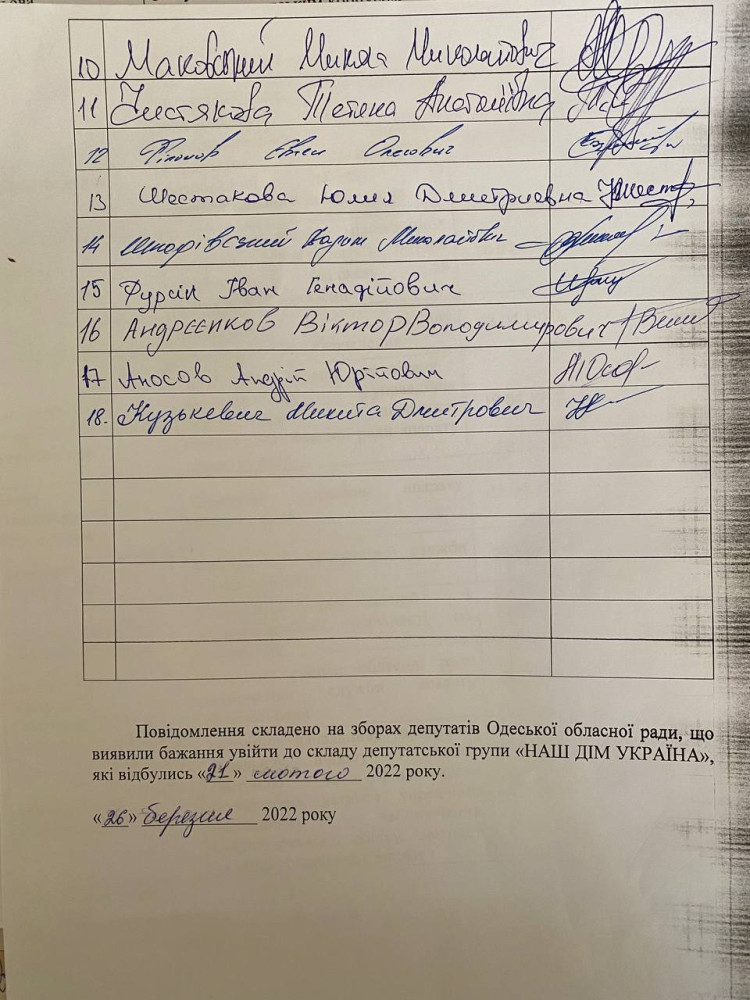 10 Маковський Микола Миколайович
11 Чистякова Тетяна Анатоліївна
12 Філіпов Євген Олегович
13 Шестакова Юлия Дмитриевна
14 Миколайович
15 Фурсін Іван Генадійович
16 Андрєєнков Віктор Володимирович
17 Аносов Андрій Юрійович
18. Кузькевич Микита Дмитрович
Повідомлення складено на зборах депутатів Одеської обласної ради, що
виявили бажання увійти до складу депутатської групи «НАШ ДІМ УКРАЇНА»,
які відбулись «21» лютого 2022 року.
«26» березня 2022 року